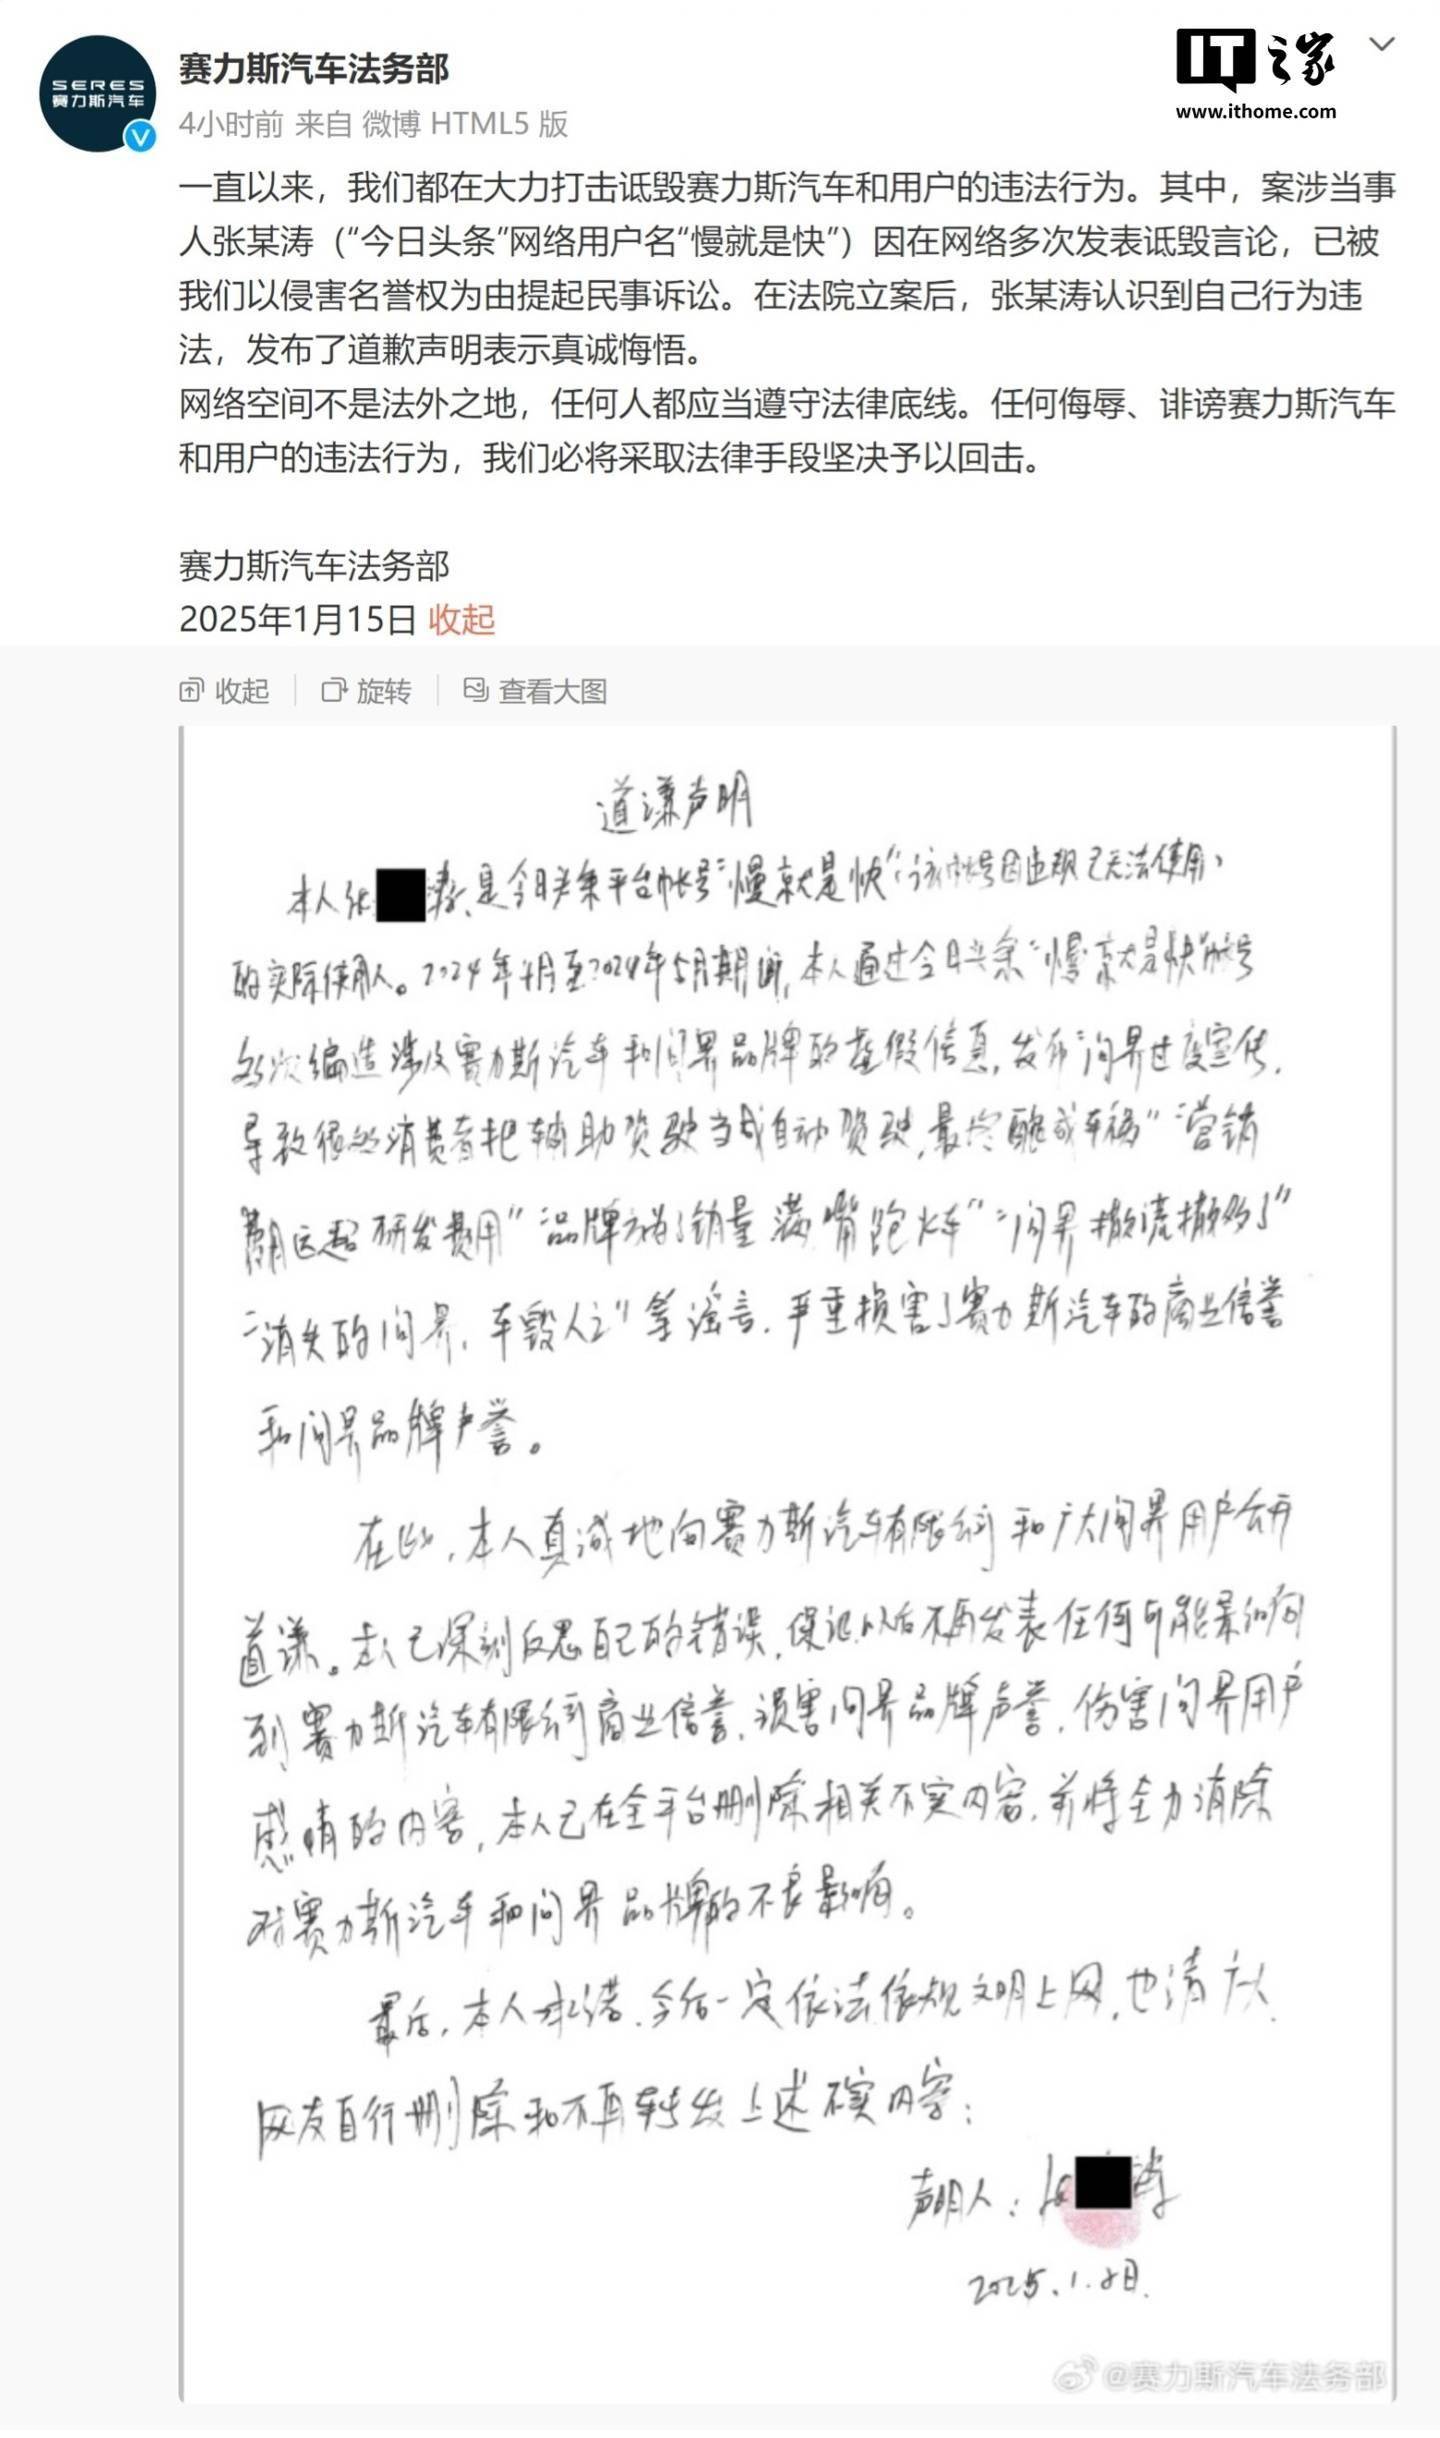 SERES
赛力斯汽车
赛力斯汽车法务部
IT之家
4小时前 来自 微博 HTML5 版
www.ithome.com
一直以来，我们都在大力打击诋毁赛力斯汽车和用户的违法行为。其中，案涉当事
人张某涛（“今日头条”网络用户名“慢就是快”）因在网络多次发表诋毁言论，已被
我们以侵害名誉权为由提起民事诉讼。在法院立案后，张某涛认识到自己行为违
法，发布了道歉声明表示真诚悔悟。
网络空间不是法外之地，任何人都应当遵守法律底线。任何侮辱、诽谤赛力斯汽车
和用户的违法行为，我们必将采取法律手段坚决予以回击。
赛力斯汽车法务部
2025年1月15日 收起
收起 旋转 查看大图
道谦声明
本人张 涛，是今日头条平台帐号“慢就是快”（该帐号因违规已无法使用）
的实际使用人。2024年4月至2024年5月期间，本人通过今日头条“慢就是快”帐号
多次编造涉及赛力斯汽车和问界品牌的虚假信息，发布“问界过度宣传，
导致很多消费者把辅助驾驶当成自动驾驶，最终酿成车祸”“营销
费用远超研发费用”“品牌方为了销量满嘴跑火车”“问界撒谎撒多了”
“消失的问界，车毁人亡”等谣言，严重损害了赛力斯汽车的商业信誉
和问界品牌声誉。
在此，本人真诚地向赛力斯汽车有限公司和广大问界用户公开
道谦。本人已深刻反思自己的错误，保证以后不再发表任何可能影响
到赛力斯汽车有限公司商业信誉，损害问界品牌声誉，伤害问界用户
感情的内容，本人已在全平台删除相关不实内容，并将全力消除
对赛力斯汽车和问界品牌的不良影响。
最后，本人承诺，今后一定依法依规文明上网，也请广大
网友自行删除和不再转发上述不实内容；
声明人：张 涛
2025.1.8日
@赛力斯汽车法务部